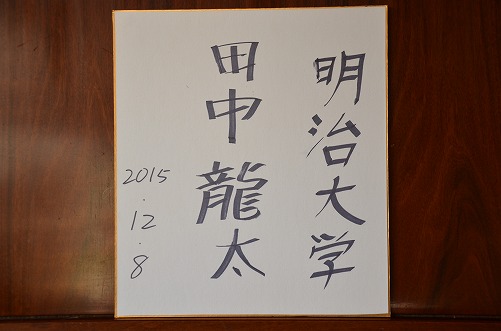 明治大学
田中龍太
2015.12.8